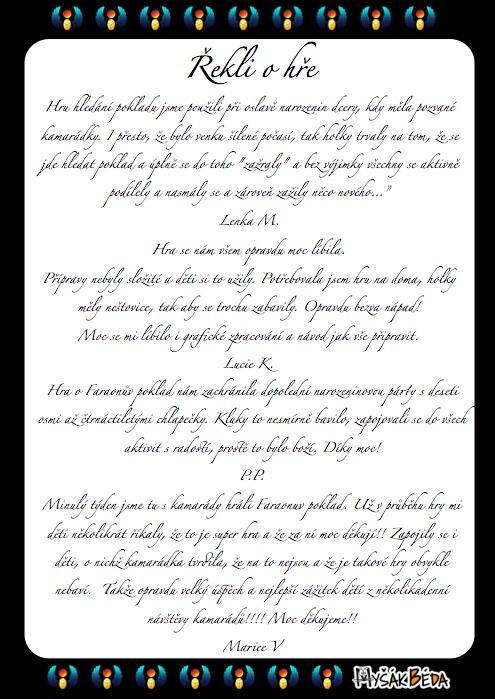 Řekli o hře
Hru hledání pokladu jsme použili při oslavě narozenin dcery, kdy měla pozvané
kamarádky. I přesto, že bylo venku šílené počasí, tak holky trvaly na tom, že se
jde hledat poklad a úplně se do toho "zažraly" a bez výjimky všechny se aktivně
podílely a nasmály se a zároveň zažily něco nového..."
Lenka M.
Hra se nám všem opravdu moc líbila.
Přípravy nebyly složité a děti si to užily. Potřebovala jsem hru na doma, holky
měly neštovice, tak aby se trochu zabavily. Opravdu bezva nápad!
Moc se mi líbilo i grafické zpracování a návod jak vše připravit.
Lucie K.
Hra o Faraonův poklad nám zachránila dopolední narozeninovou párty s deseti
osmi až čtrnáctiletými chlapečky. Kluky to nesmírně bavilo, zapojovali se do všech
aktivit s radostí, prostě to bylo boží. Díky moc!
P.P.
Minulý týden jsme tu s kamarády hráli Faraonuv poklad. Už v průběhu hry mi
děti několikrát říkaly, že to je super hra a že za ni moc děkují!! Zapojily se i
děti, o nichž kamarádka tvrdila, že na to nejsou a že je takové hry obvykle
nebaví. Takže opravdu velký úspěch a nejlepší zážitek dětí z několikadenní
návštěvy kamarádů!!!! Moc děkujeme!!
Mariee V
MYŠÁK BÉDA